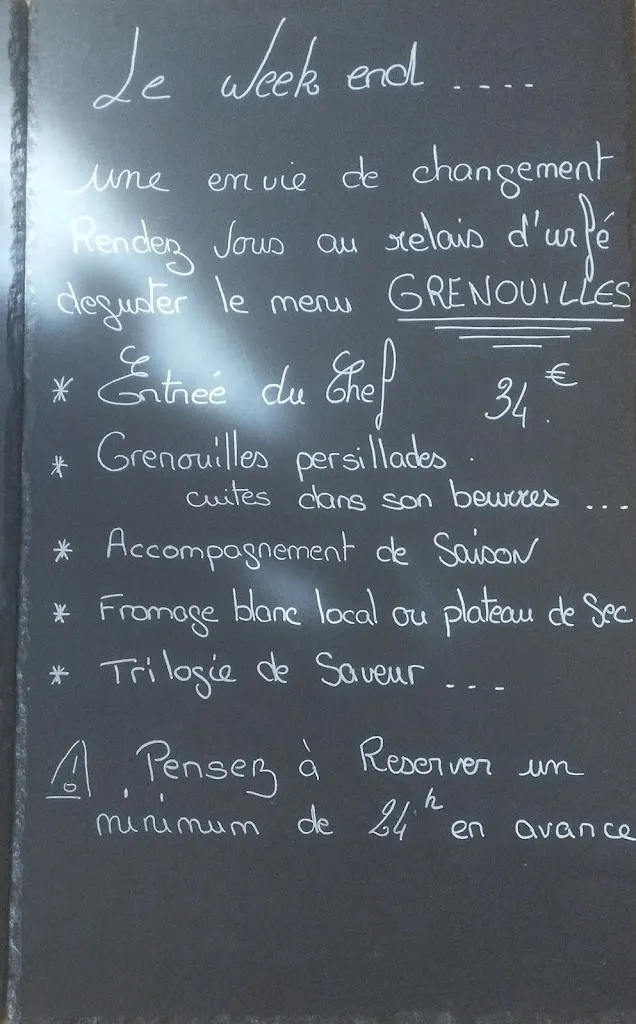 Le week end ....
une envie de changement
Rendez Vous au relais d'urfé
deguster le menu GRENOUILLES
* Entreé du Chef 34.€
* Grenouilles persillades.
cuites dans son beurres ...
* Accompagnement de Saison
* Fromage blanc local ou plateau de Sec
* Trilogie de Saveur ...
⚠. Pensez à Reserver un
minimum de 24h en avance